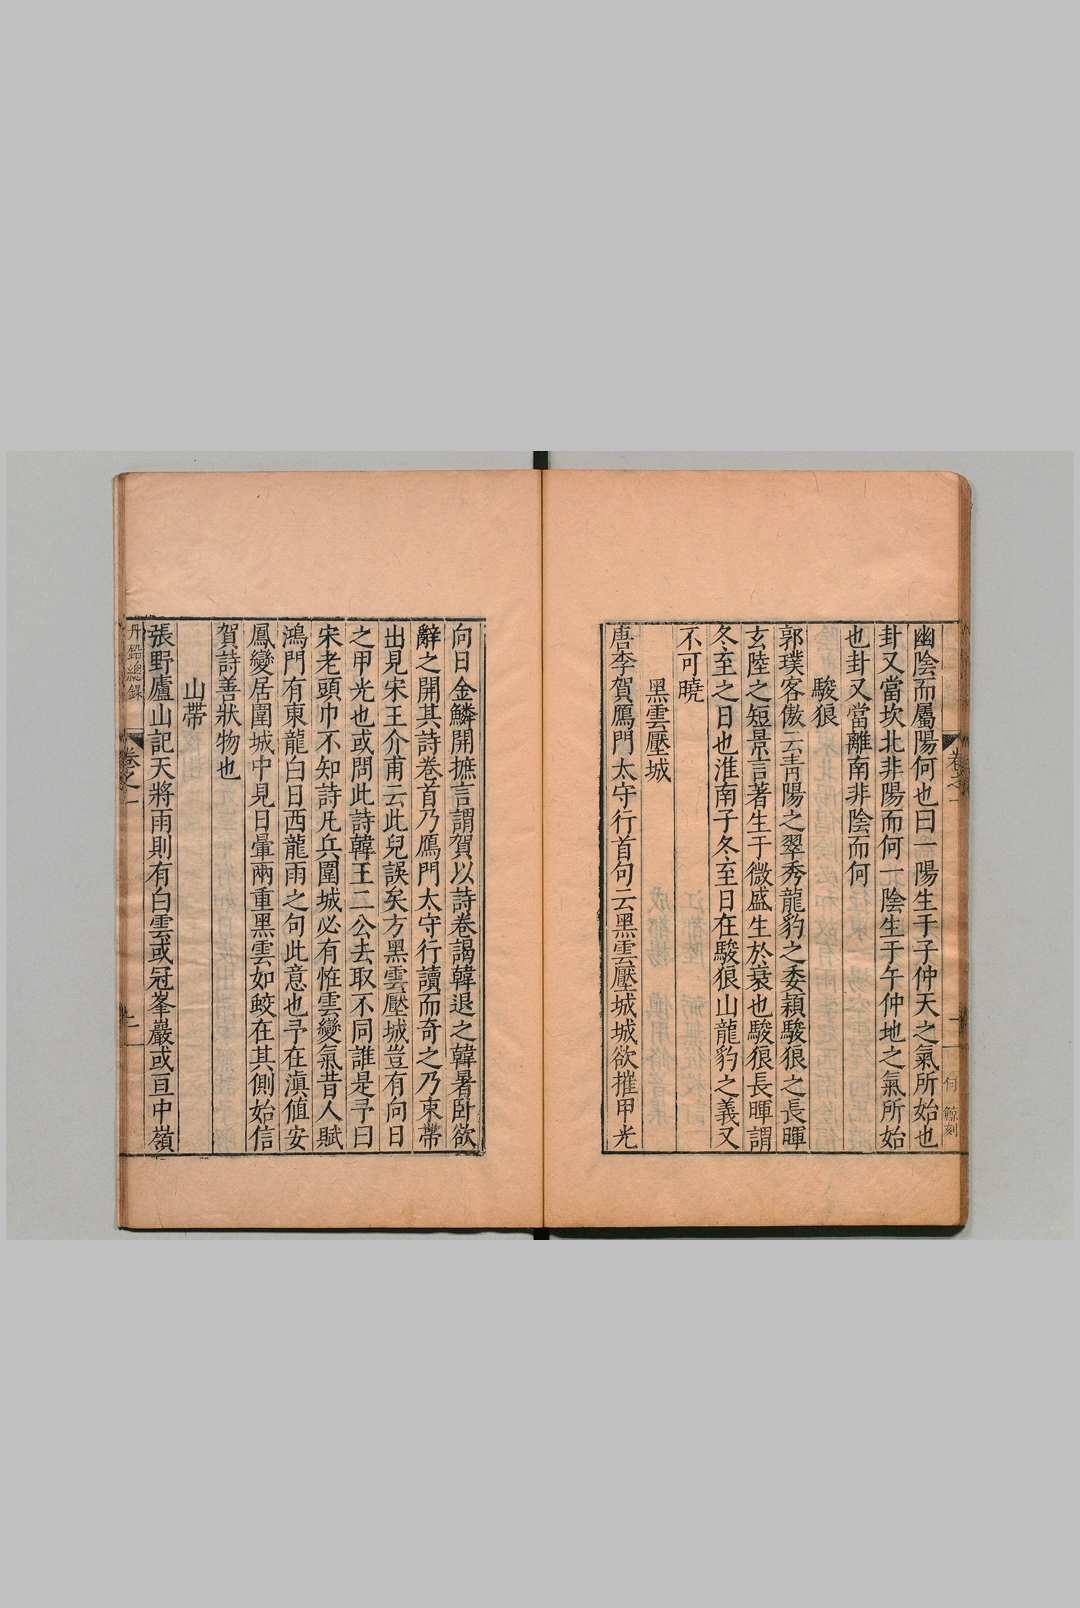 幽陰而屬陽何也曰一陽生于子仲天之氣所始也
卦又當坎北非陽而何一陰生于午仲地之氣所始
也卦又當離南非陰而何
駿狼
郭璞客傲云青陽之翠秀龍豹之委穎駿狼之長暉
玄陸之短景言著生于微盛生於衰也駿狼長暉謂
冬至之日也淮南子冬至日在駿狼山龍豹之義又
不可曉
黑雲壓城
唐李賀鴈門太守行首句云黑雲壓城城欲摧甲光
向日金鱗開摭言謂賀以詩卷謁韓退之韓暑臥欲
辭之開其詩卷首乃鴈門太守行讀而奇之乃束帶
出見宋王介甫云此兒誤矣方黑雲壓城豈有向日
之甲光也或問此詩韓王二公去取不同誰是予曰
宋老頭巾不知詩凡兵圍城必有怪雲變氣昔人賦
鴻門有東龍白日西龍雨之句此意也予在滇值安
鳳變居圍城中見日暈兩重黑雲如蛟在其側始信
賀詩善狀物也
山帶
張野廬山記天將雨則有白雲或冠峯巖或亘中嶺
丹鉛總錄
卷之一
二
卷之一
一
何鯨刻